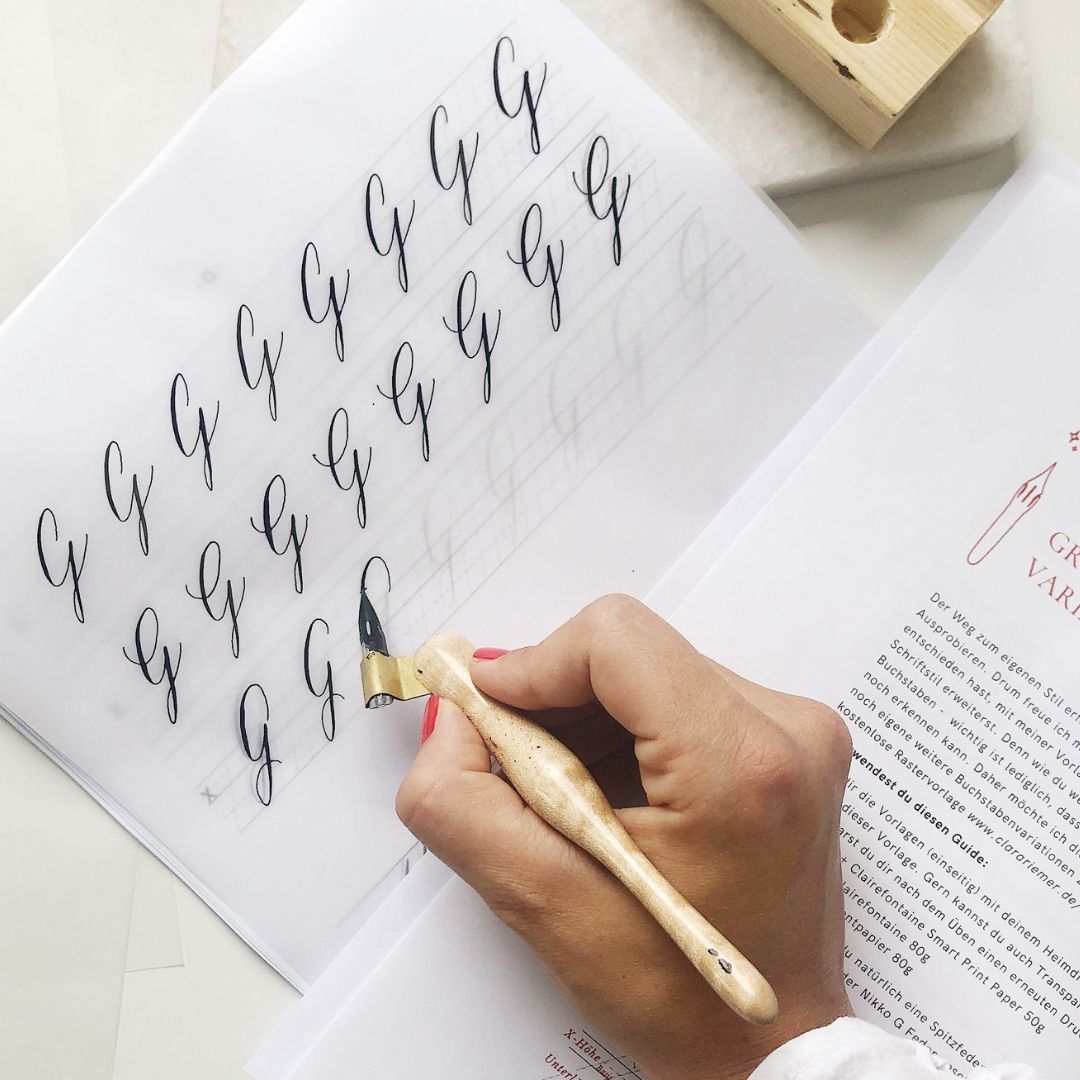 G G G G G G G G
G G G G G G G G
x G G
GR
VARI
Der Weg zum eigenen Stil
Ausprobieren. Drum freue ich
entschieden hast, mit meiner
Schriftstil erweiterst. Denn wie du
Buchstaben – wichtig ist lediglich, dass
noch erkennen kann. Daher möchte ich
noch eigene weitere Buchstabenvariationen
kostenlose Rastervorlage www.clarariemer.de/
wendest du diesen Guide:
die Vorlagen (einseitig) mit deinem
dieser Vorlage. Gern kannst du auch
du dir nach dem Üben einen erneuten
+ Clairefontaine Smart Print Paper 50g
lairefontaine 80g
ntpapier 80g
du natürlich eine
der Nikko G
X-Höhe